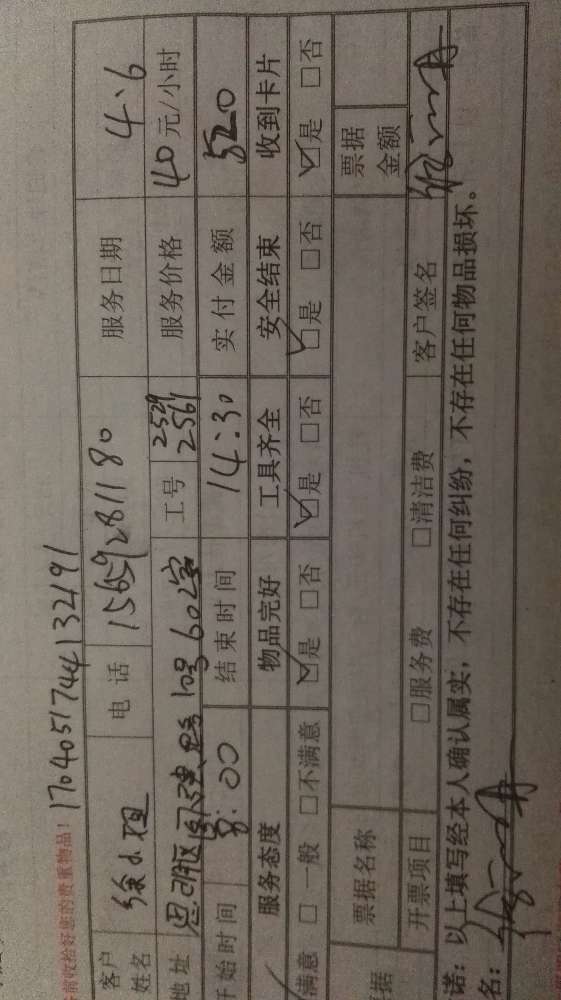 前收拾好您的贵重物品! 1704051744132191
客户姓名 徐小姐 电话 15659281180 服务日期 4.6
地址 思明区 10号602室 工号 2529 2561 服务价格 40元/小时
开始时间 8:00 结束时间 14:30 实付金额 520
服务态度 物品完好 工具齐全 安全结束 收到卡片
满意 □一般 □不满意 ☑是 □否 ☑是 □否 ☑是 □否 ☑是 □否
据 票据名称 票据金额
开票项目 □服务费 □清洁费 客户签名
诺:以上填写经本人确认属实,不存在任何纠纷,不存在任何物品损坏。
名: